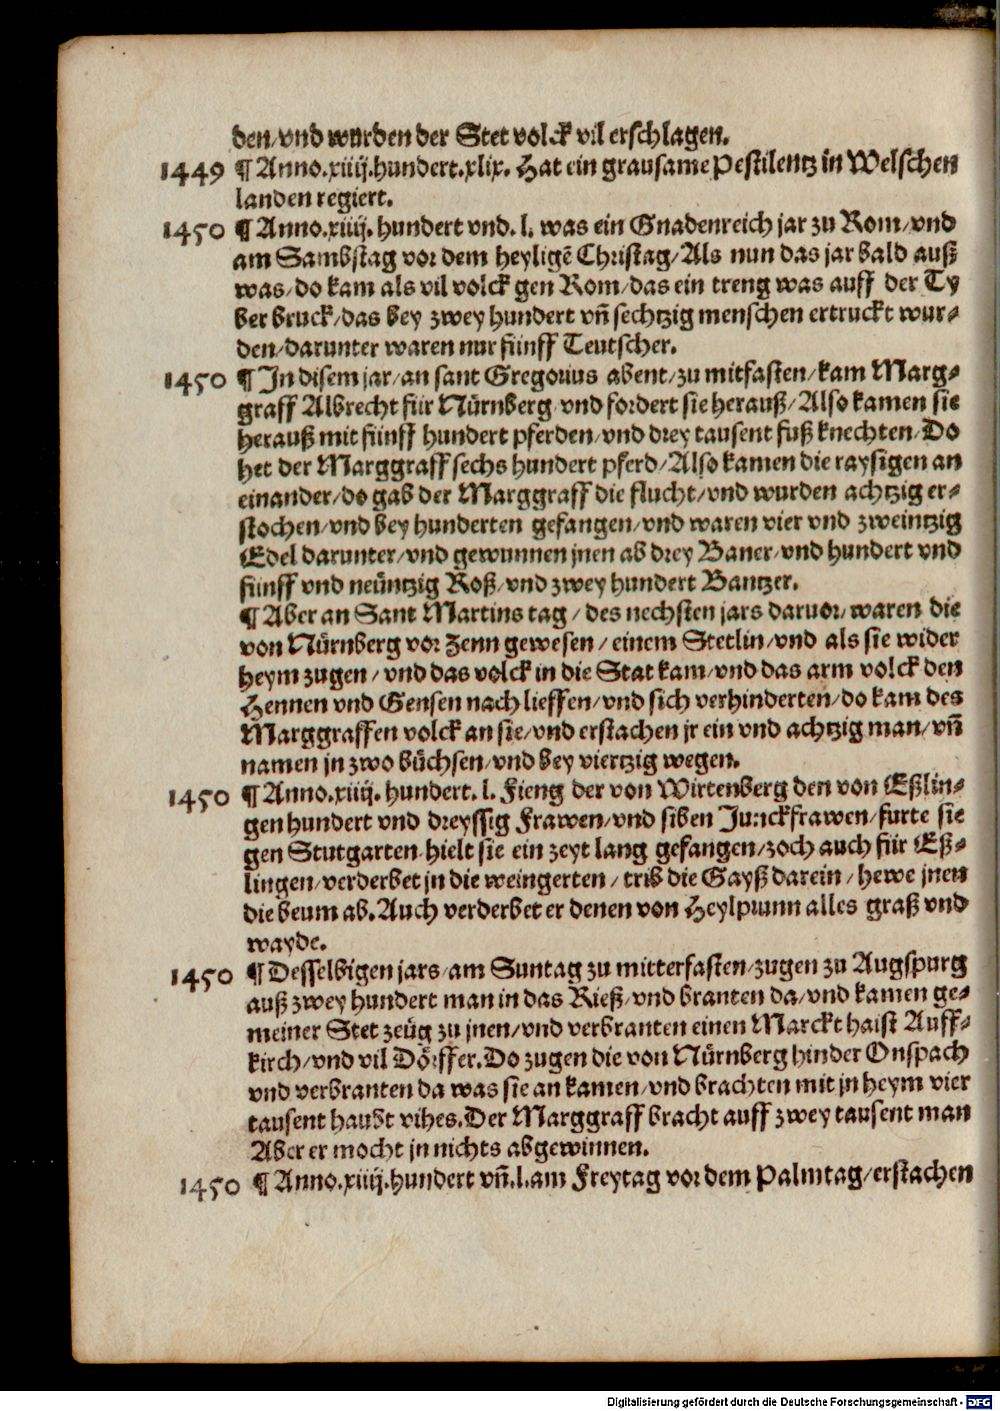 den/vnd wurden der Stet volck vil erschlagen.
1449 ¶ Anno.xiiij.hundert.xlix. Hat ein grausame Pestilentz in Welschen
landen regiert.
1450 ¶ Anno.xiiij. hundert vnd. l. was ein Gnadenreich jar zu Rom/vnd
am Sambstag vor dem heyligẽ Christag/Als nun das jar bald auß
was/do kam als vil volck gen Rom/das ein treng was auff der Ty
ber bruck/das bey zwey hundert vñ sechtzig menschen ertruckt wur-
den/darunter waren nur fünff Teutscher.
1450 ¶ In disem jar/an sant Gregorius abent/zu mitfasten/kam Marg-
graff Albrecht für Nürnberg vnd fordert sie herauß/Also kamen sie
herauß mit fünff hundert pferden/vnd drey tausent fuß knechten/Do
het der Marggraff sechs hundert pferd/Also kamen die raysigen an
einander/do gab der Marggraff die flucht/vnd wurden achtzig er-
stochen/vnd bey hunderten gefangen/vnd waren vier vnd zweintzig
Edel darunter/vnd gewunnen jnen ab drey Baner/vnd hundert vnd
fünff vnd neüntzig Roß/vnd zwey hundert Bantzer.
¶ Aber an Sant Martins tag/des nechsten jars daruor/waren die
von Nürnberg vor Zenn gewesen/einem Stetlin/vnd als sie wider
heym zugen/vnd das volck in die Stat kam/vnd das arm volck den
Hennen vnd Gensen nach lieffen/vnd sich verhinderten/do kam des
Marggraffen volck an sie/vnd erstachen jr ein vnd achtzig man/vñ
namen jn zwo büchsen/vnd bey viertzig wegen.
1450 ¶ Anno.xiiij. hundert. l. Fieng der von Wirtenberg den von Eßlin-
gen hundert vnd dreyssig Frawen/vnd siben Junckfrawen/furte sie
gen Stutgarten/hielt sie ein zeyt lang gefangen/zoch auch für Eß-
lingen/verderbet jn die weingerten/trib die Gayß darein/hewe jnen
die beum ab. Auch verderbet er denen von Heylprunn alles graß vnd
wayde.
1450 ¶ Desselbigen jars/am Suntag zu mitterfasten/zugen zu Augspurg
auß zwey hundert man in das Rieß/vnd branten da/vnd kamen ge-
meiner Stet zeüg zu jnen/vnd verbranten einen Marckt haist Auff-
kirch/vnd vil Dörffer. Do zugen die von Nürnberg hinder Onspach
vnd verbranten da was sie an kamen/vnd brachten mit jn heym vier
tausent haubt vihes. Der Marggraff bracht auff zwey tausent man
Aber er mocht jn nichts abgewinnen.
1450 ¶ Anno.xiiij.hundert vñ.l.am Freytag vor dem Palmtag/erstachen
Digitalisierung gefördert durch die Deutsche Forschungsgemeinschaft - DFG